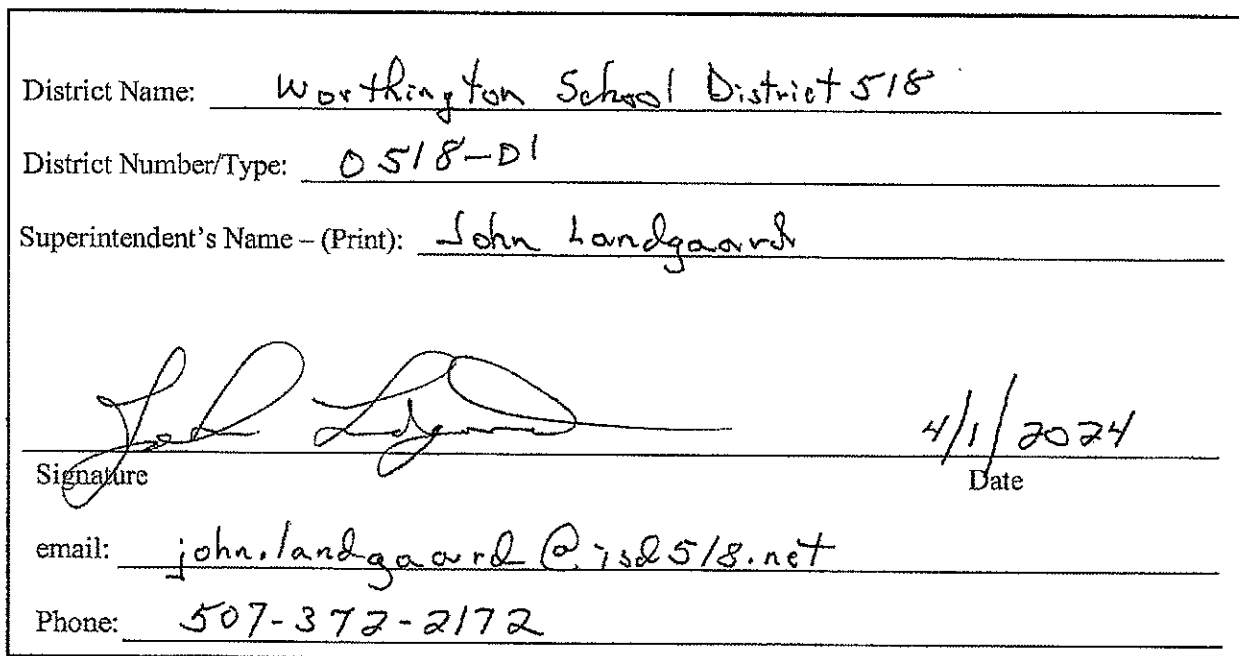 District Name: Worthington School District 518
District Number/Type: 0518-D1
Superintendent's Name – (Print): John Landgaard
4/1/2024
Signature Date
email: john.landgaard@isd518.net
Phone: 507-372-2172